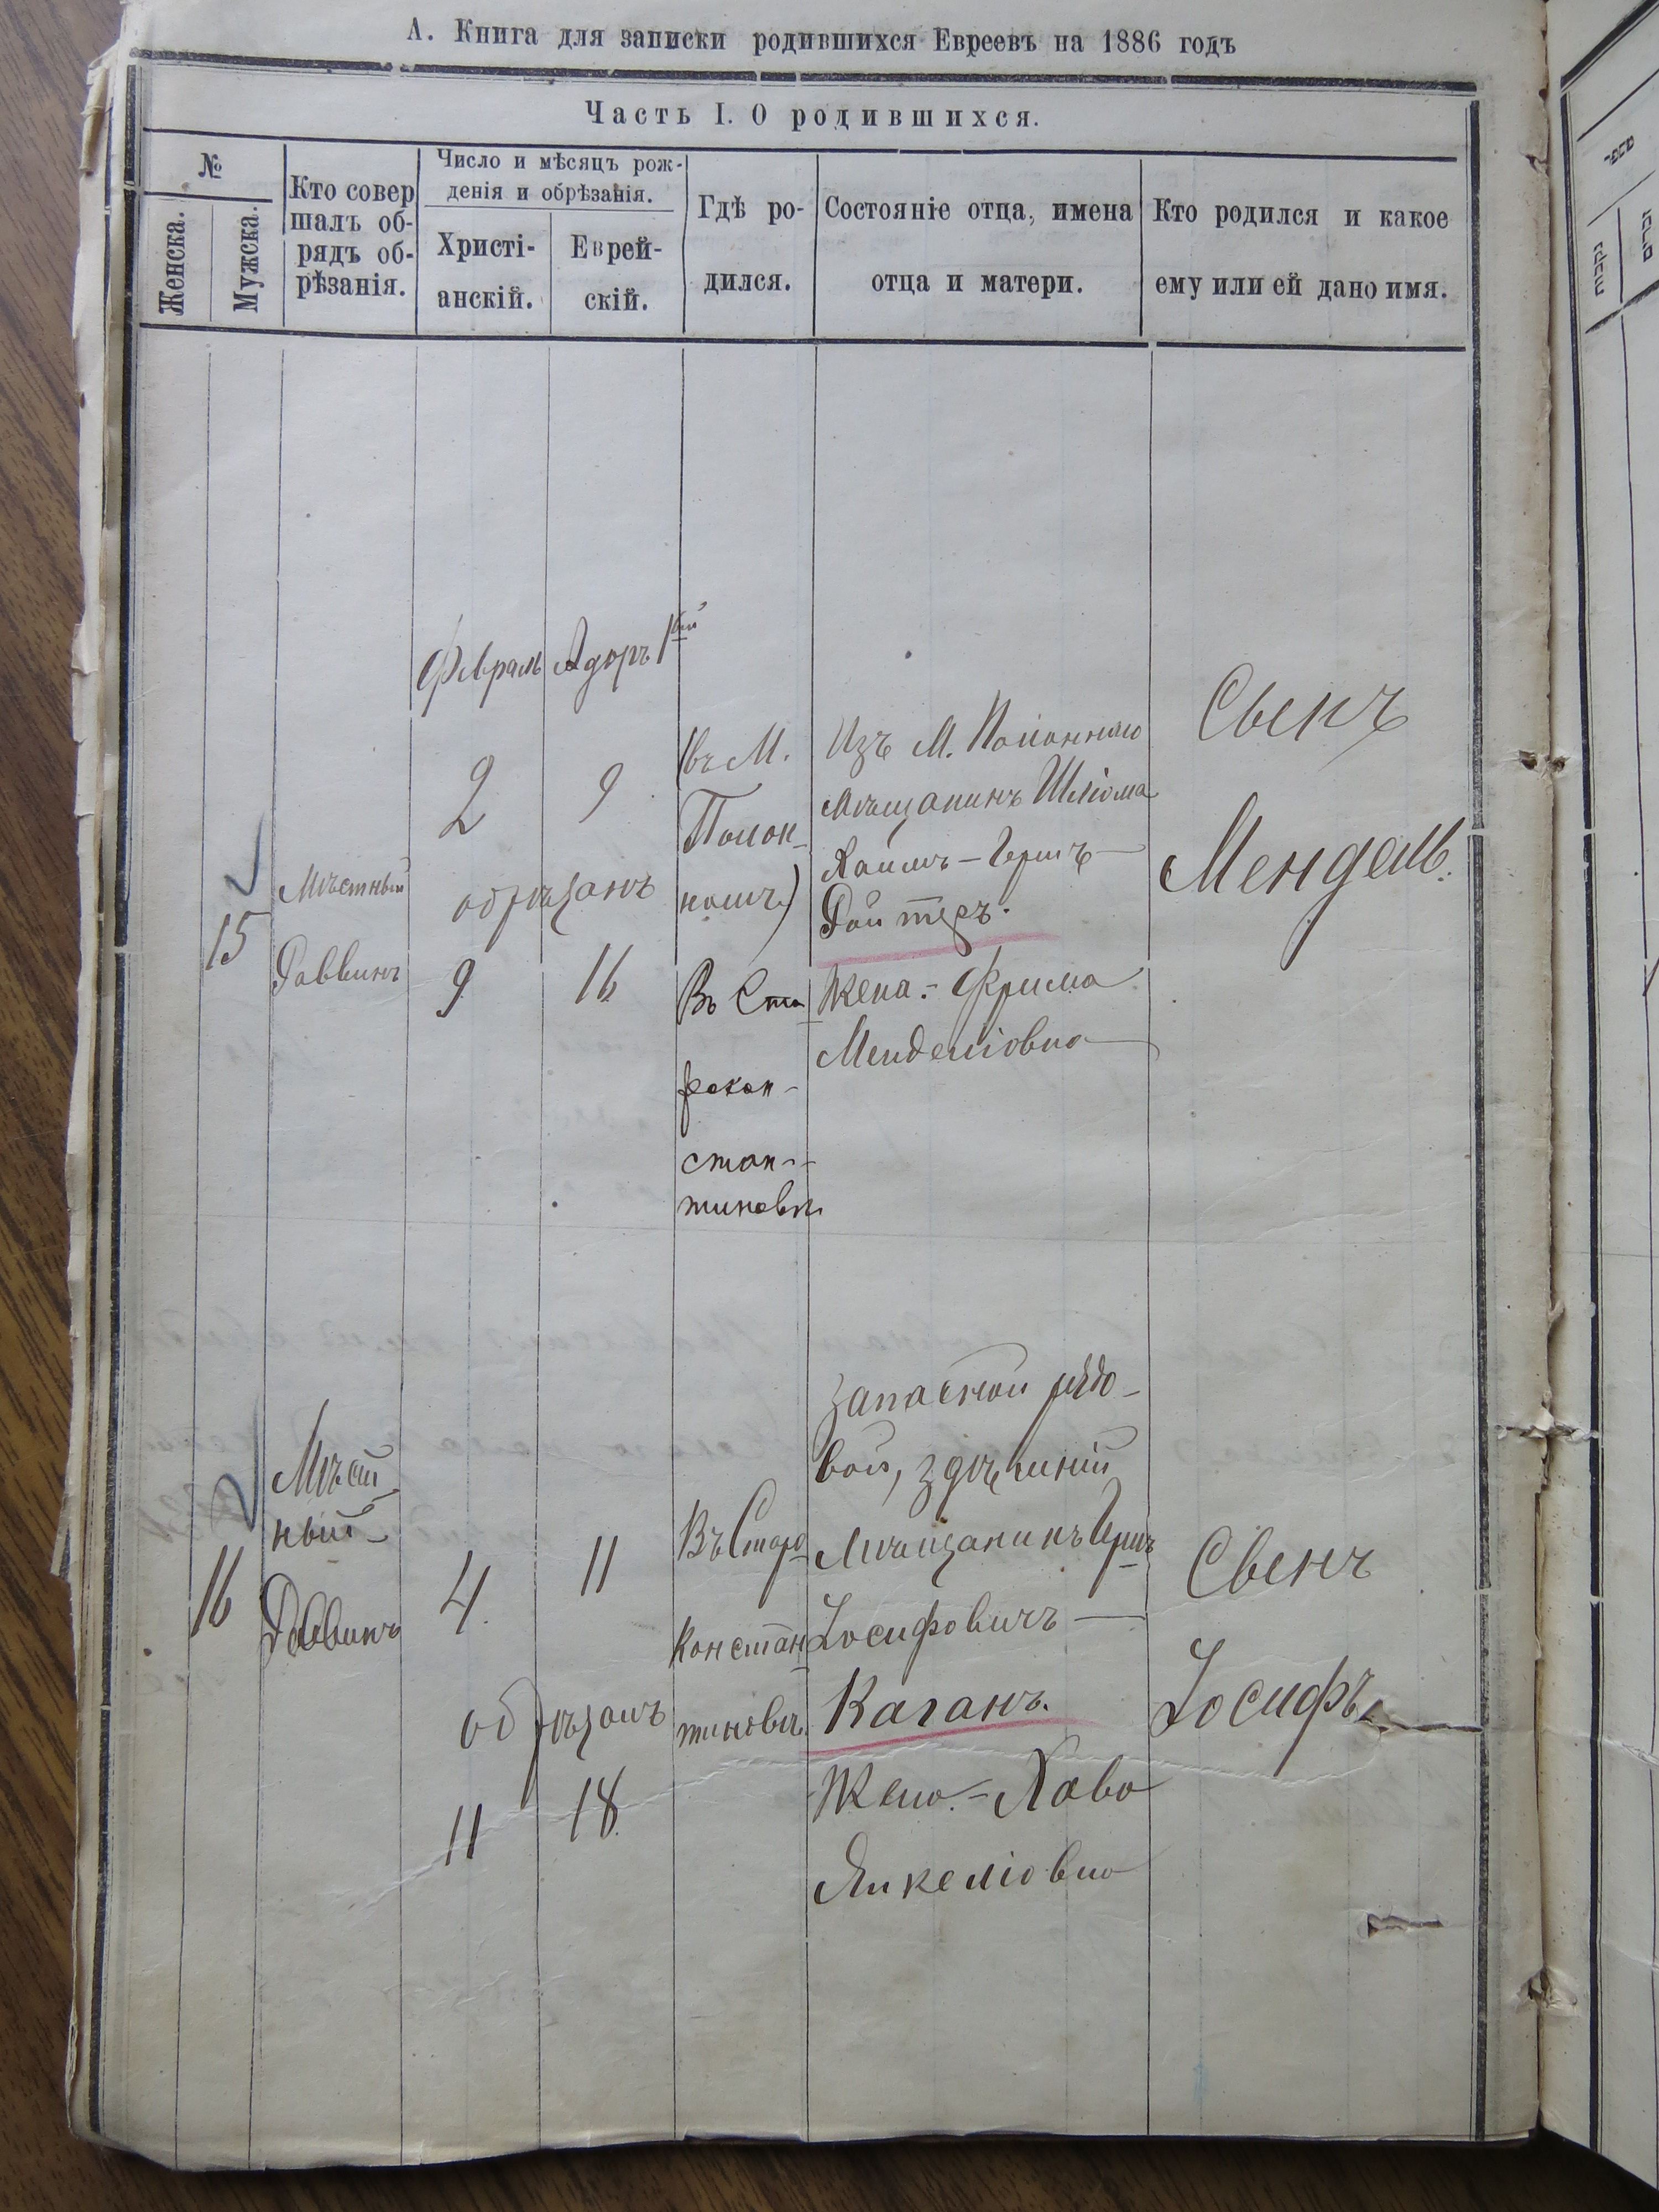 А. Книга для записки родившихся Евреевъ на 1886 годъ
Часть I. О родившихся.
№
Женска.
Мужска.
Кто совер
шалъ об-
рядъ об-
рѣзанія.
Число и мѣсяцъ рож-
денія и обрѣзанія.
Христі-
анскій.
Еврей-
скій.
Гдѣ ро-
дился.
Состояніе отца, имена
отца и матери.
Кто родился и какое
ему или ей дано имя.
Февраль
Адоръ 1вый
15
Мѣстный
Раввинъ
2
9
обрѣзанъ
9
16
(въ М.
Полон-
номъ)
Въ Ста
рокон-
стан-
тиновѣ
Изъ М. Полонного
Мѣщанинъ Шліома
Хаимъ-Гершъ
Ройтеръ.
Жена:- Фрима
Менделіовна
Сынъ
Мендель.
16
Мѣст
ный
Раввинъ
4.
11
обрѣзанъ
11
18.
Въ Старо
Констан
тиновѣ.
Запасной рядо-
вой, здѣшній
Мѣщанинъ Гершъ
Іосифовичъ
Каганъ.
Жена.- Хава
Янкеліовна
Сынъ
Іосифъ
מספר
נקבות
זכרים